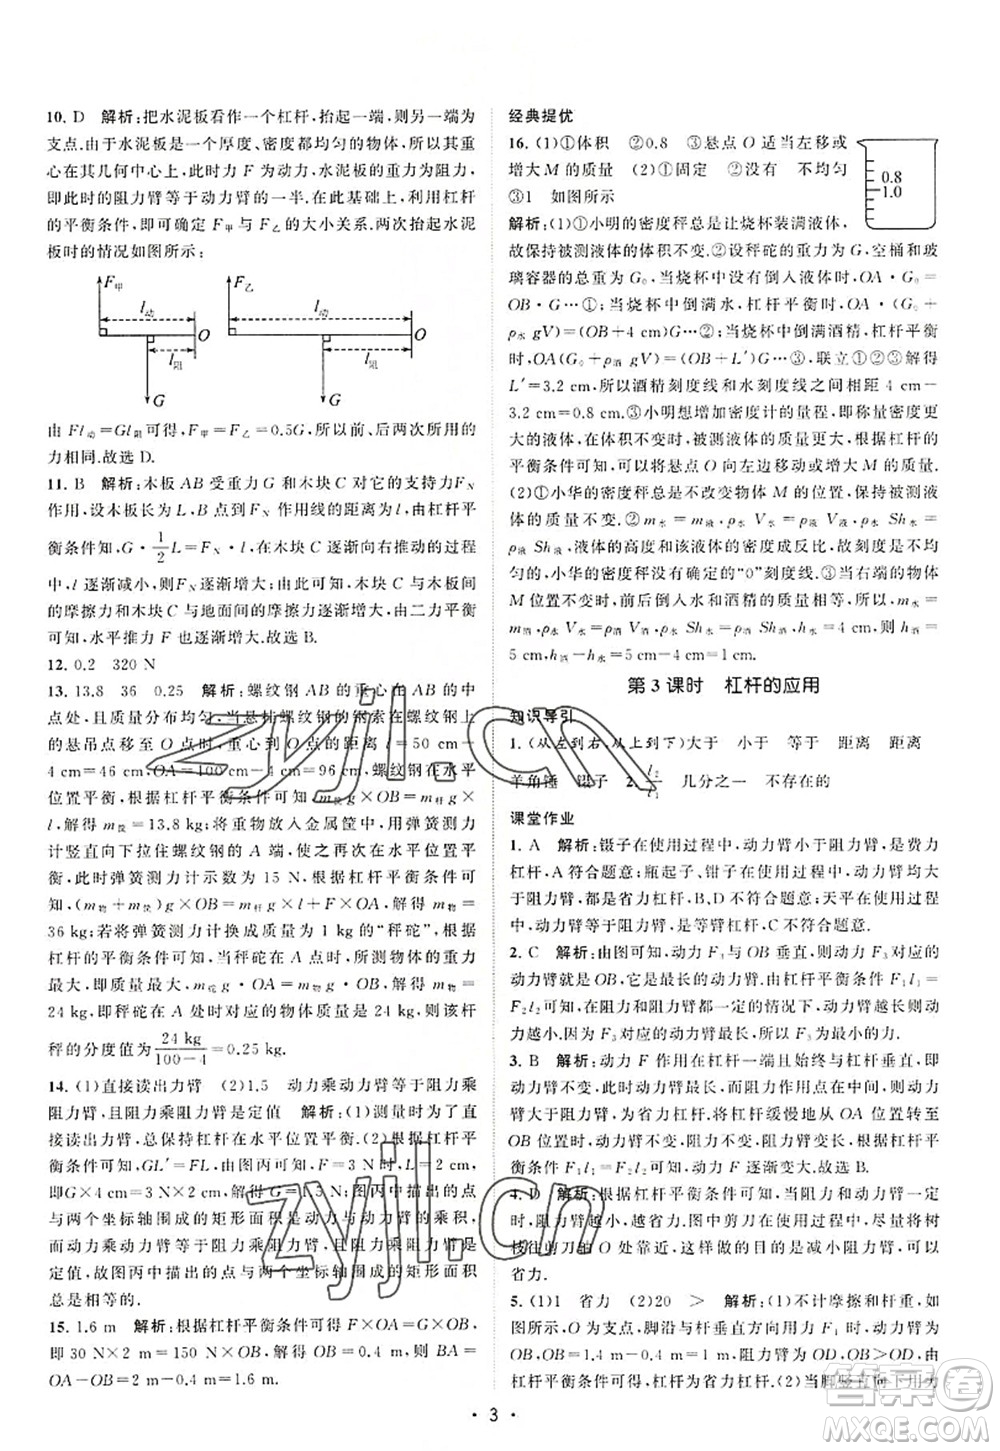 10. D 解析:把水泥板看作一个杠杆,抬起一端,则另一端为
支点.由于水泥板是一个厚度、密度都均匀的物体,所以,其重
心在其几何中心上,此时力 F 为动力,水泥板的重力为阻力,
此时的阻力臂等于动力臂的一半.在此基础上,利用杠杆
的平衡条件,即可得到F甲与F乙的大小关系.两次抬起水泥
板时的情况如图所示:
F甲 l动 O l阻 G
F乙 l动 O l阻 G
由 Fl动=Gl阻可得,F甲=F乙=0.5G,所以前、后两次所用的
力相同.故选 D.
11. B 解析:木板 AB 受重力 G 和木块 C 对它的支持力 FN
作用,设木板长为 L,B 点到 FN 作用线的力臂为 l,由杠杆平
衡条件知,G·1/2 L=FN·l,在木块 C 逐渐向右推动的过程
中,l 逐渐减小,FN 逐渐增大;在此过程中木块 C 与木板间
的摩擦力和木块 C 与地面间的摩擦力逐渐增大,由二力平衡
可知,水平推力 F 也逐渐增大.故选 B.
12. 0.2 320 N
13. 13.8 36 0.25 解析:螺纹钢 AB 的重心在 AB 的中
点且质量分布均匀,当悬挂螺纹钢的钢索在螺纹钢上方
的悬吊点移至 O 点时,重心到 O 点的距离 l=50 cm-
4 cm=46 cm,OA=100 cm-4 cm=96 cm,螺纹钢在水平
位置平衡,根据杠杆平衡条件可知 m物g×OB=m螺g×
l,解得 m螺=13.8 kg;将重物放入金属筐中,用弹簧测力
计竖直向下拉住螺纹钢的 A 端,使杠杆在水平位置平衡,
此时弹簧测力计的示数为 15 N,根据杠杆平衡条件可得,
(m物+m螺)g×OB=m螺g×l+F×OA,解得m物=
36 kg;若将弹簧测力计换成质量为 1 kg 的“秤砣”,根据杠
杆的平衡条件可知,当秤砣在 A 点时,所测的物体质量最
大,此时 m砣g×OA=m物g×OB,解得 m物=
24 kg,即秤砣在A处时对应的物体质量为 24 kg,则该杆
秤的分度值为24 kg/(100-4)=0.25 kg.
14. (1)直接读出力臂 (2)1.5 动力乘动力臂等于阻力乘
阻力臂,且阻力乘阻力臂是定值 解析:(1)测量时为了直
接读出力臂,总保持杠杆在水平位置平衡.(2)根据杠杆平
衡条件可知,GL′=FL,由图丙可知,当 L=4 cm 时,F=
即G=1.5 N;图丙中描出的点与
两个坐标轴围成的矩形面积是动力与动力臂的乘积,由于
动力×动力臂=阻力×阻力臂,且阻力与阻力臂的乘积是
定值,故图丙中描出的点与两个坐标轴围成的矩形面积
总是相等的.
15. 1.6 m 解析:根据杠杆平衡条件可得 F×OA=G×OB,
即 30 N×2 m=150 N×OB,解得 OB=0.4 m,则 BA=
OA-OB=2 m-0.4 m=1.6 m.
经典提优
16. (1)①体积 ②0.8 ③悬点 O 适当左移或
增大 M 的质量 (2)①固定 ②没有 不均匀
③1 如图所示
0.8
1.0
解析:(1)①小明的密度秤总是让烧杯装满液体,
故保持被测液体的体积不变.②设秤砣的重力为 G,空桶和玻
璃容器的总重为 G0,当烧杯中没有倒入液体时,OA·G0=
OB·G…①;当烧杯中倒满水,杠杆平衡时,OA·(G0+
ρ水gV)=(OB+4 cm)G…②;当烧杯中倒满酒精,杠杆平衡
时,OA(G0+ρ酒gV)=(OB+L′)G…③,联立①②③解得
L′=3.2 cm,所以酒精刻度线和水刻度线之间的距离=4 cm-
3.2 cm=0.8 cm.③小明想增大密度计的量程,即称量密度更
大的液体,在体积不变时,被测液体的质量更大,根据杠杆平
衡条件可知,所以悬点 O 向适当左移动或增大 M 的质量.
(2)①小华的密度秤总是不改变物体 M 的位置,保持被测液
体的质量不变.②m水=m液,ρ水Sh水=
ρ液Sh液,液体的高度和该液体的密度成反比,故刻度是不均
匀的,小华的密度计没有确定的“0”刻度.③当右端的物体
M 位置不变时,前后倒入水和酒精的质量相等,所以 m水=
m酒,ρ水V水=ρ酒V酒,ρ水Sh水=ρ酒Sh酒,则h酒=
5 cm,h酒-h水=5 cm-4 cm=1 cm.
第 3 课时 杠杆的应用
知识导引
1. (从左到右,从上到下)大于 小于 等于 距离 距离
羊角锤 镊子 2. l2/l1 几分之一 不存在的
课堂作业
1. A 解析:镊子在使用过程中,动力臂小于阻力臂,是费力
杠杆,A 符合题意;瓶起子、钳子在使用过程中,动力臂大于
阻力臂,是省力杠杆,B、D 不符合题意;天平在使用过程
中,动力臂等于阻力臂,是等臂杠杆,C 不符合题意.
2. C 解析:由图可知,动力 F3 与 OB 垂直,则力 F3 对应的
动力臂是 OB,为最长的动力臂,由杠杆平衡条件 F1l1=
F2l2可知,在阻力、阻力臂都一定的情况下,动力臂越长,动
力越小.因为F3的动力臂最长,所以F3为最小的力.
3. B 解析:动力 F 作用在杠杆一端且始终与杠杆垂直,即
动力臂大于阻力臂,为省力杠杆.将杠杆缓慢地从OA位置转至
OB 位置过程中,动力臂不变,阻力臂变大,阻力不变,根据杠杆平
衡条件 F1l1=F2l2可知,动力 F 逐渐变大.
4. D 解析:根据杠杆平衡条件可知,当阻力和动力臂一定
时,阻力臂越小,越省力.图中剪刀在使用过程中,应将树
枝往剪刀的 O 处靠近一些,这样能减小阻力臂,从而更
省力.
5. (1)1 省力 (2)20 > 解析:(1)不计摩擦和杆重,如
图所示,支点为O,脚沿与踏杆垂直方向蹬踏时,动力臂为
OB,OB=1.4 m-0.4 m=1 m,阻力臂为 OD,OB>OD,由
杠杆平衡条件可知,此时为省力杠杆.(2)当脚竖直向下用力
·3·